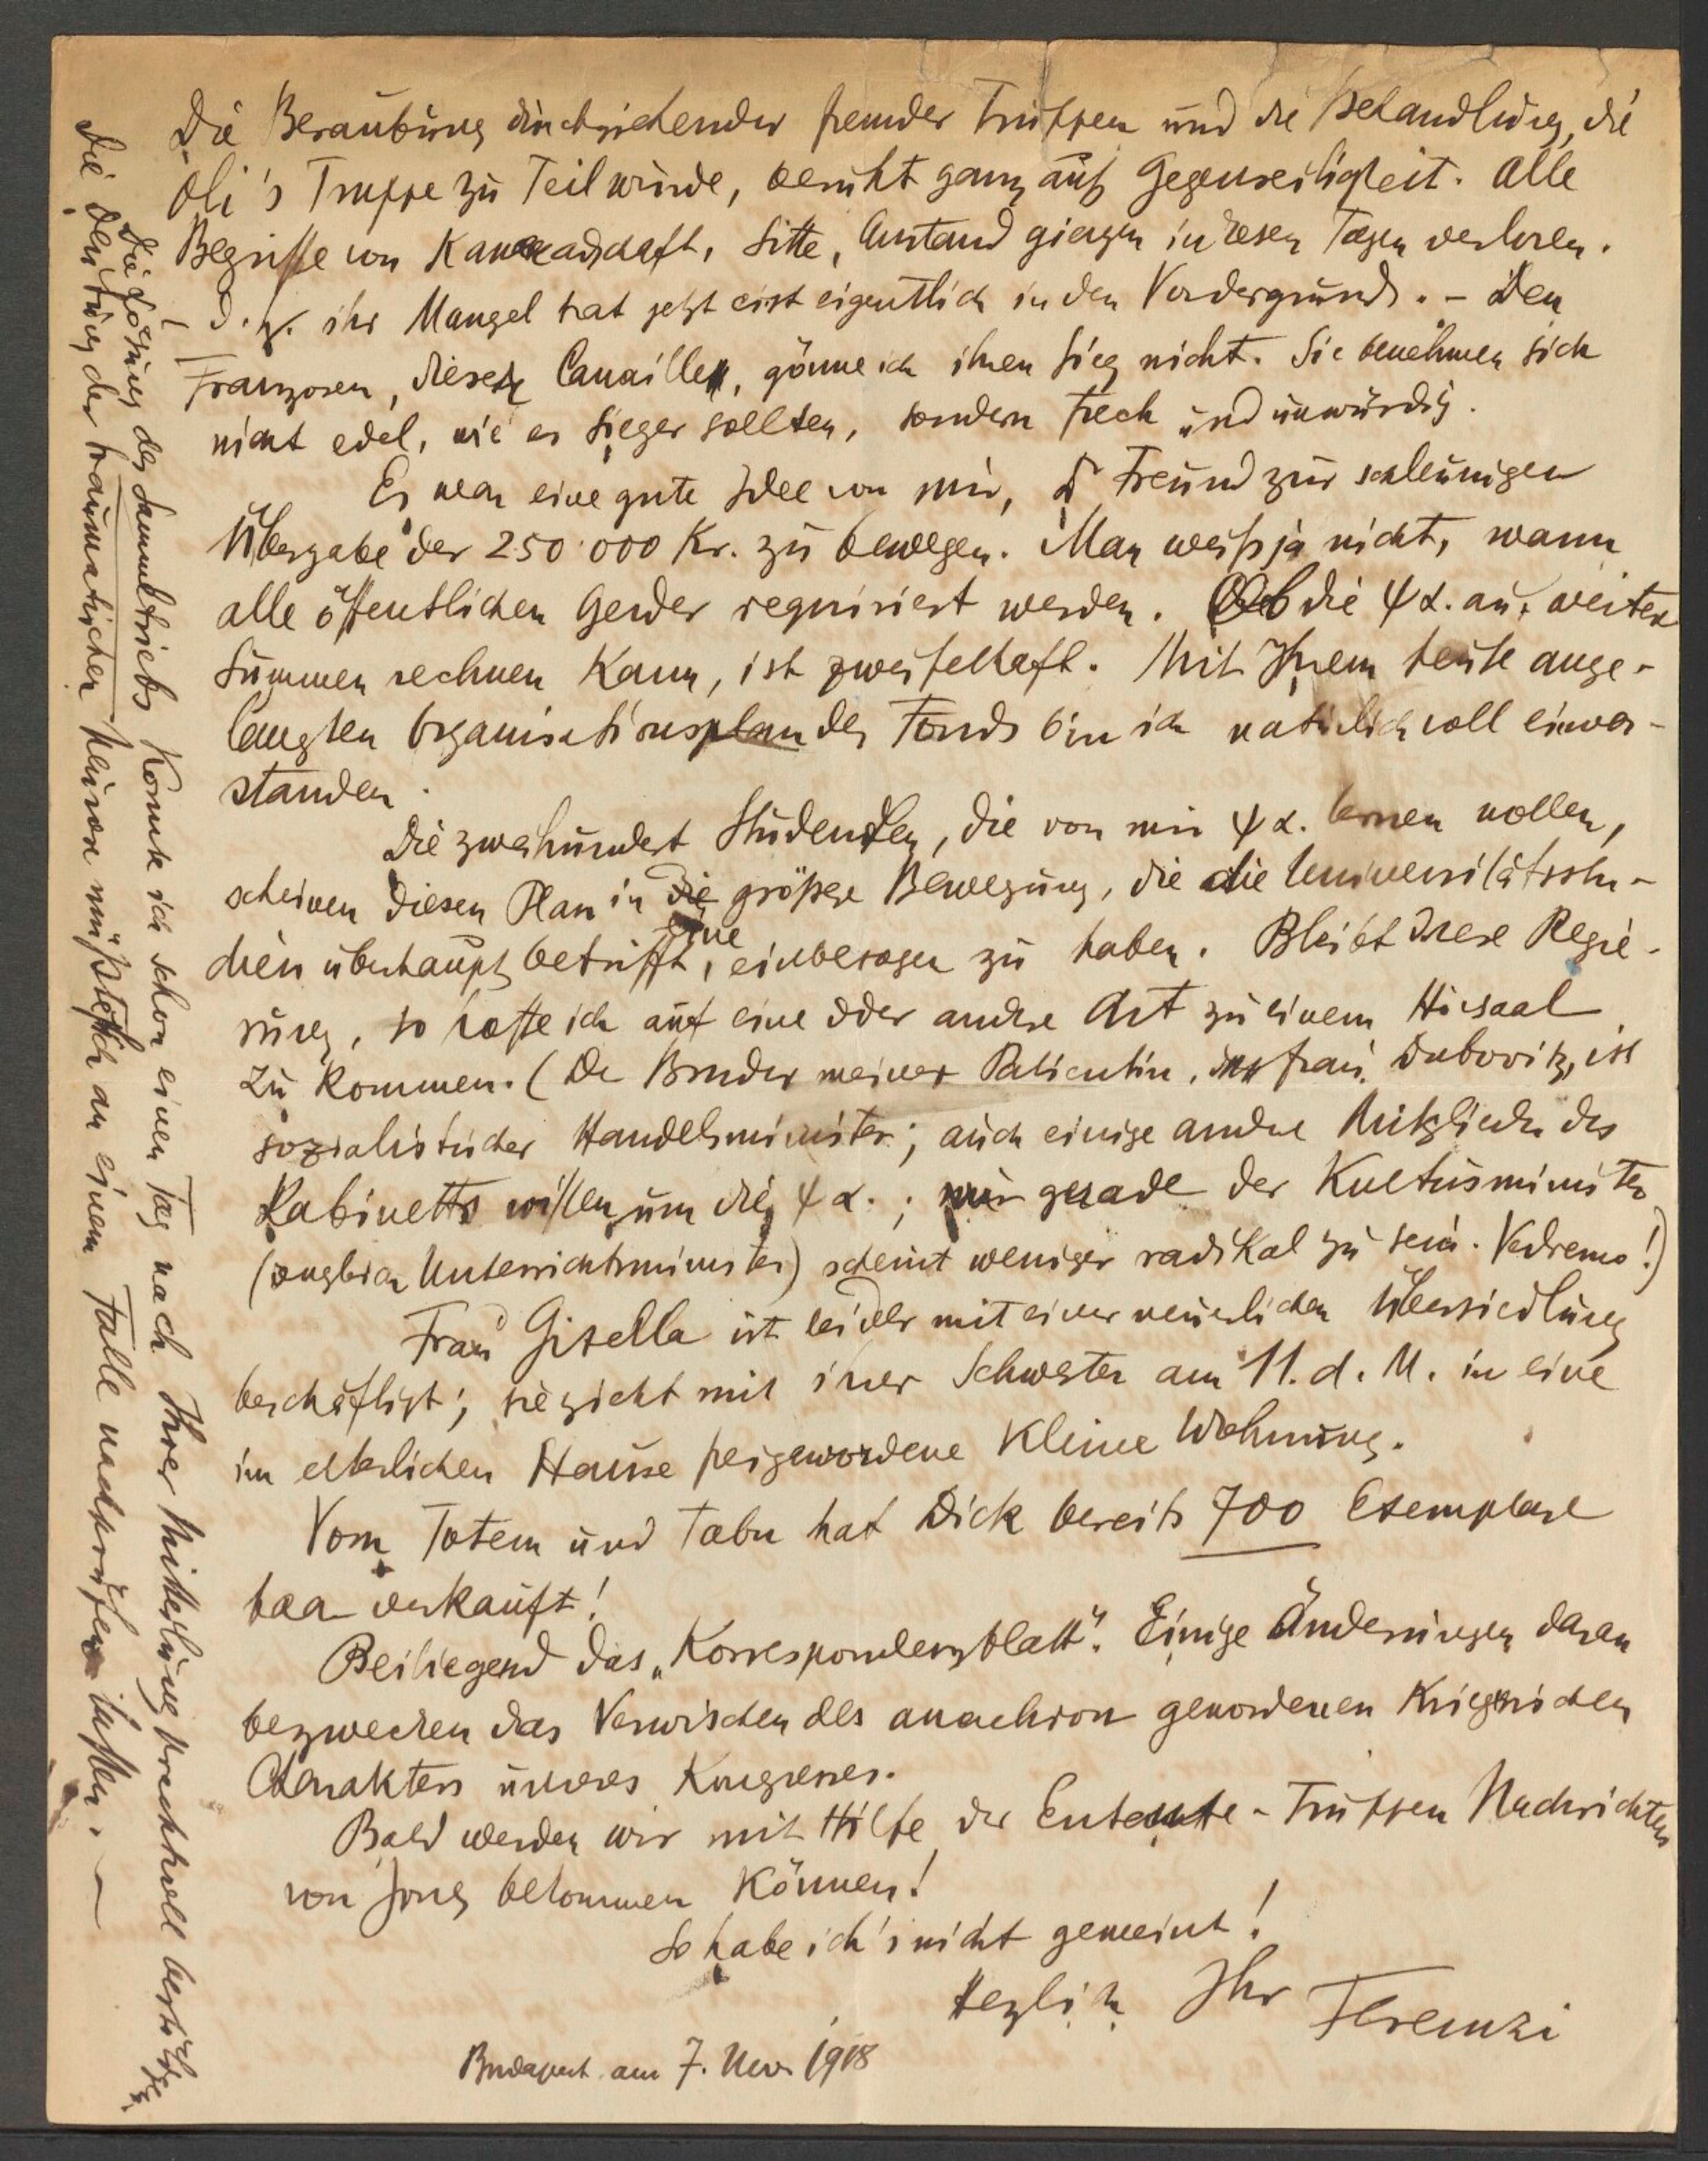 Die Beraubung durchziehender fremder Truppen und die Behandlung, die
Oli's Truppe zu Teil wurde, beruht ganz auf Gegenseitigkeit. Alle
Begriffe von Kameradschaft, Sitte, Anstand giengen in diesen Tagen verloren.
d. h. ihr Mangel trat jetzt erst eigentlich in den Vordergrund. – Den
Franzosen, diesen Canaillen, gönne ich ihren Sieg nicht. Sie benehmen sich
nicht edel, wie es Sieger sollten, sondern frech und unwürdig.
Es war eine gute Idee von mir, Freund zur schleunigen
Übergabe der 250·000 Kr. zu bewegen. Man weiß ja nicht, wann
alle öffentlichen Gelder requiriert werden. Ob die ψα. auf weitere
Summen rechnen kann, ist zweifelhaft. Mit Ihrem heute ange-
langten Organisationsplan des Fonds bin ich natürlich voll einver-
standen.
Die zweihundert Studenten, die von mir ψα. lernen wollen,
scheinen diesen Plan in eine größere Bewegung, die die Universitätsstu-
dien überhaupt betrifft, einbezogen zu haben. Bleibt diese Regie-
rung, so hoffe ich auf eine oder andre Art zu einem Hörsaal
zu kommen. (Der Bruder meiner Patientin, Frau Dubovitz, ist
sozialistischer Handelsminister; auch einige andre Mitglieder des
Kabinetts wissen um die ψα.; nur gerade der Kultusminister
(zugleich Unterrichtsminister) scheint weniger radikal zu sein. Vedremo!)
Frau Gisella ist leider mit einer neuerlichen Übersiedlung
beschäftigt; sie zieht mit ihrer Schwester am 11. d. M. in eine
im elterlichen Hause freigewordene kleine Wohnung.
Vom Totem und Tabu hat Dick bereits 700 Exemplare
baar verkauft!
Beiliegend das „Korrespondenzblatt". Einige Änderungen daran
bezwecken das Verwischen des anachron gewordenen kriegerischen
Charakters unseres Kongresses.
Bald werden wir mit Hilfe der Entente-Truppen Nachrichten
von Jones bekommen können!
So habe ich's nicht gemeint!
Herzlich Ihr Ferenczi
Budapest am 7. Nov. 1918
Die Lösung des Sammeltriebs konnte ich schon einen Tag nach Ihrer Mitteilung prachtvoll bestätigen.
Die Deutung der traumatischen Neurose müßte sich an einem Falle nachprüfen lassen. –